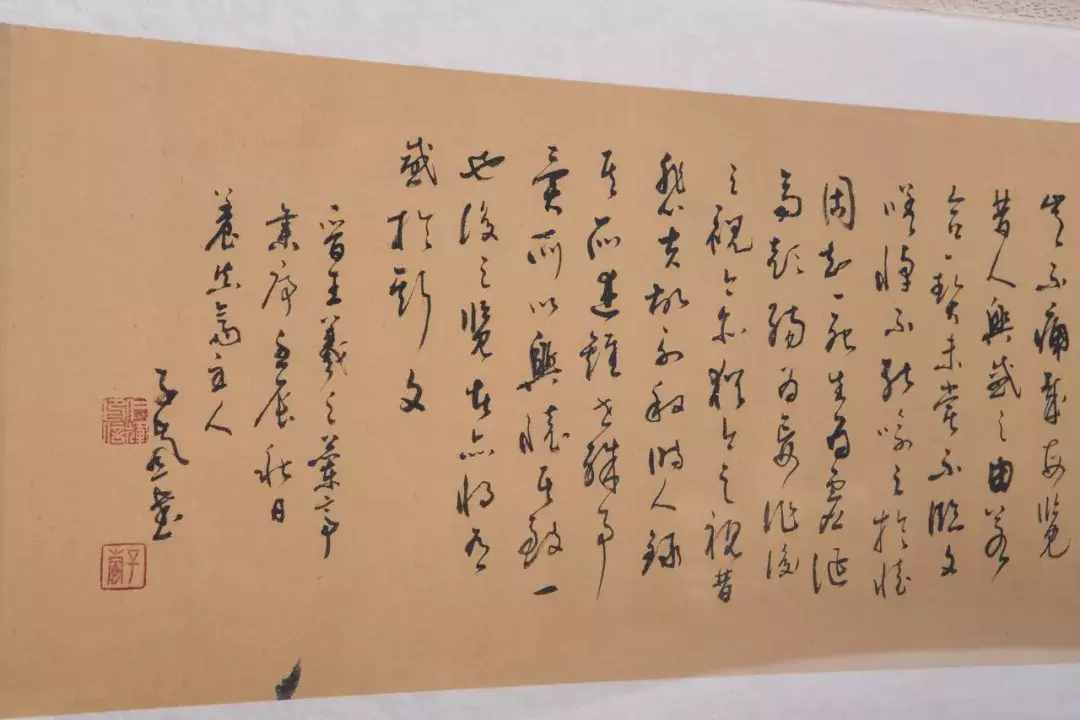 豈不痛哉每覽
昔人興感之由若
合一契未嘗不臨文
嗟悼不能喻之於懷
固知一死生為虛誕
齊彭殤為妄作後
之視今亦猶今之視昔
悲夫故列敘時人錄
其所述雖世殊事
異所以興懷其致一
也後之覽者亦將有
感於斯文
晉王羲之蘭亭
集序辰秋日
養真齋主人
子書